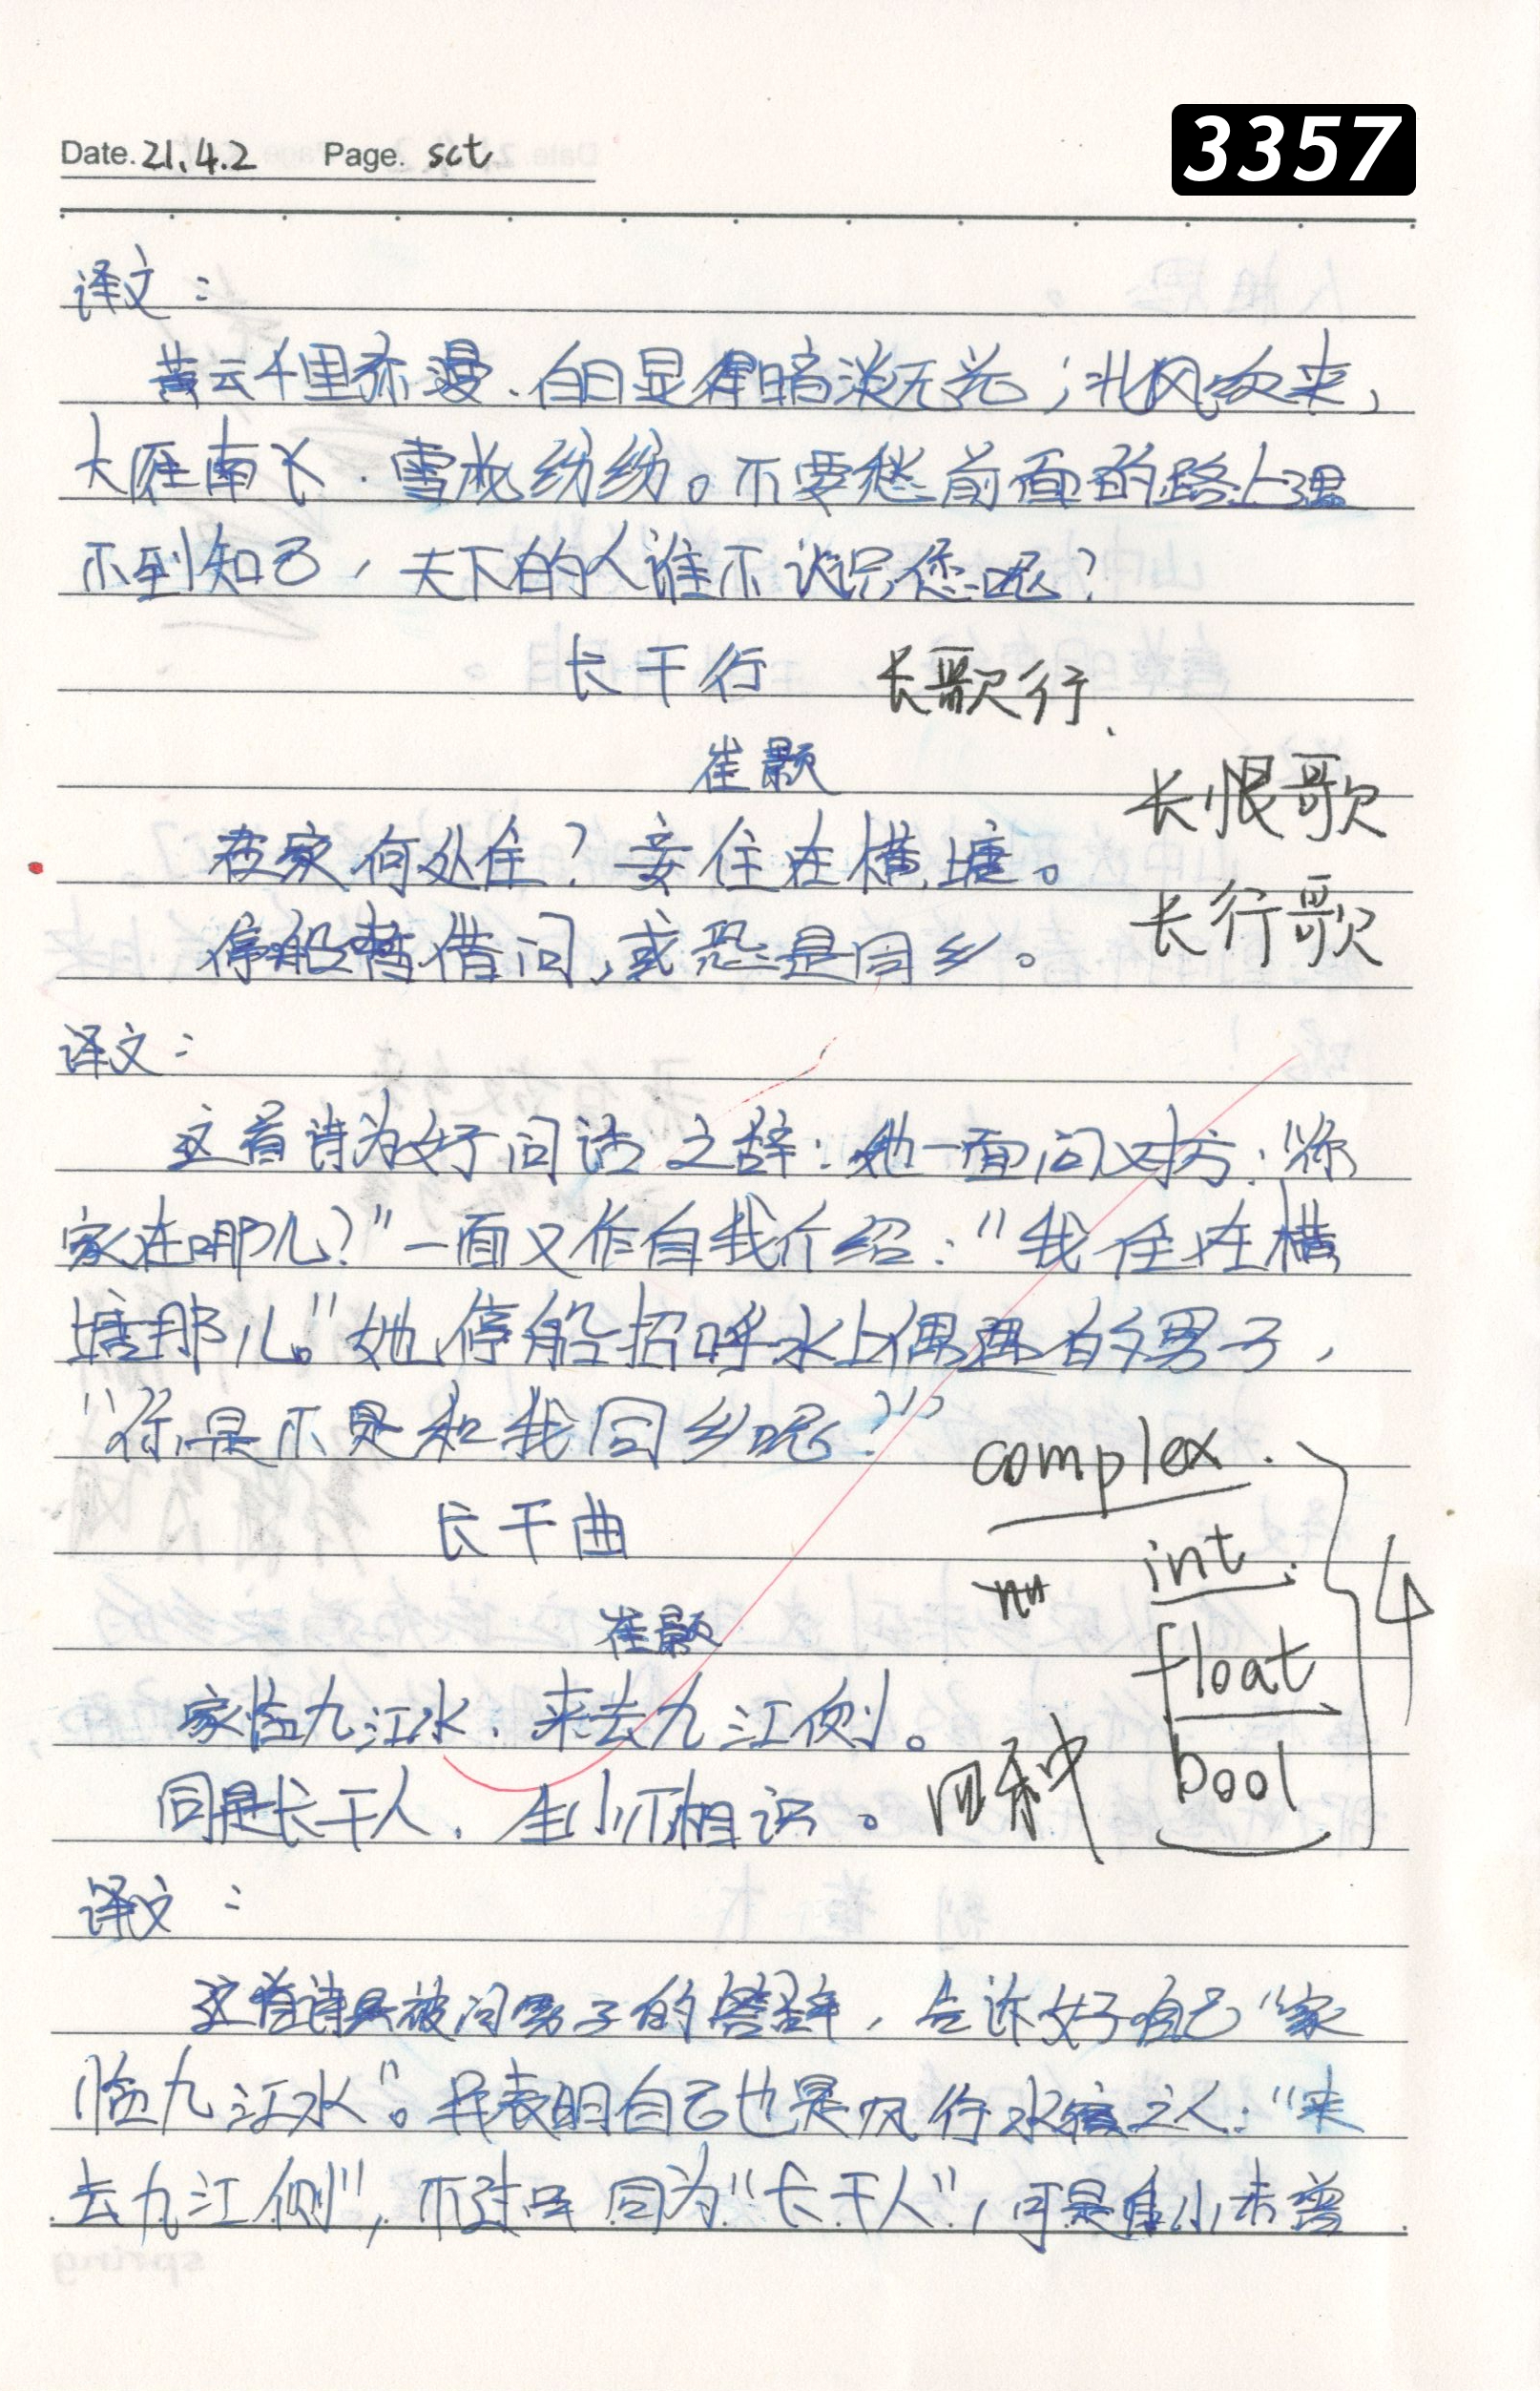 3357
Date. 21.4.2 Page. sct
译文：
黄云千里弥漫、白日显得暗淡无光；北风吹来，
大雁南飞．雪花纷纷。不要愁前面的路上遇
不到知己，天下的人谁不识您呢？
长干行 长歌行、
崔颢
长恨歌
君家何处住？妾住在横塘。
长行歌
停船暂借问，或恐是同乡。
译文：
这首诗为好问话之辞：她一面问对方：“你
家在哪儿？”一面又作自我介绍：“我住在横
塘那儿。”她停船招呼水上偶遇的男子，
“你是不是和我同乡呢？”
complex .
长干曲
int .
崔颢
float
家临九江水．来去九江侧。
bool
四种
同是长干人．生小不相识。
译文：
这首诗是被问男子的答辞，告诉女子自己“家
临九江水”。并表明自己也是风行水宿之人：“来
去九江侧”，不过 同为“长干人”，可是自小未曾
spring